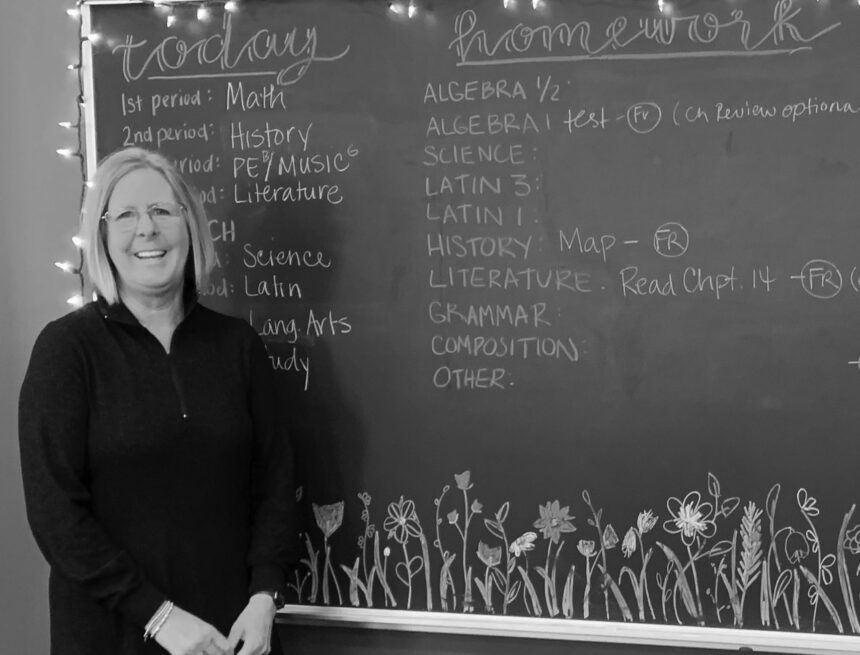 today
1st period: Math
2nd period: History
riod: PE B/MUSIC G
od: Literature
CH
Science
od: Latin
Lang. Arts
tudy
homework
ALGEBRA 1/2:
ALGEBRA 1 test - Fr (Ch Review optiona
SCIENCE:
LATIN 3:
LATIN 1:
HISTORY: Map - FR
LITERATURE. Read Chpt. 14 - FR (
GRAMMAR:
COMPOSITION:
OTHER: